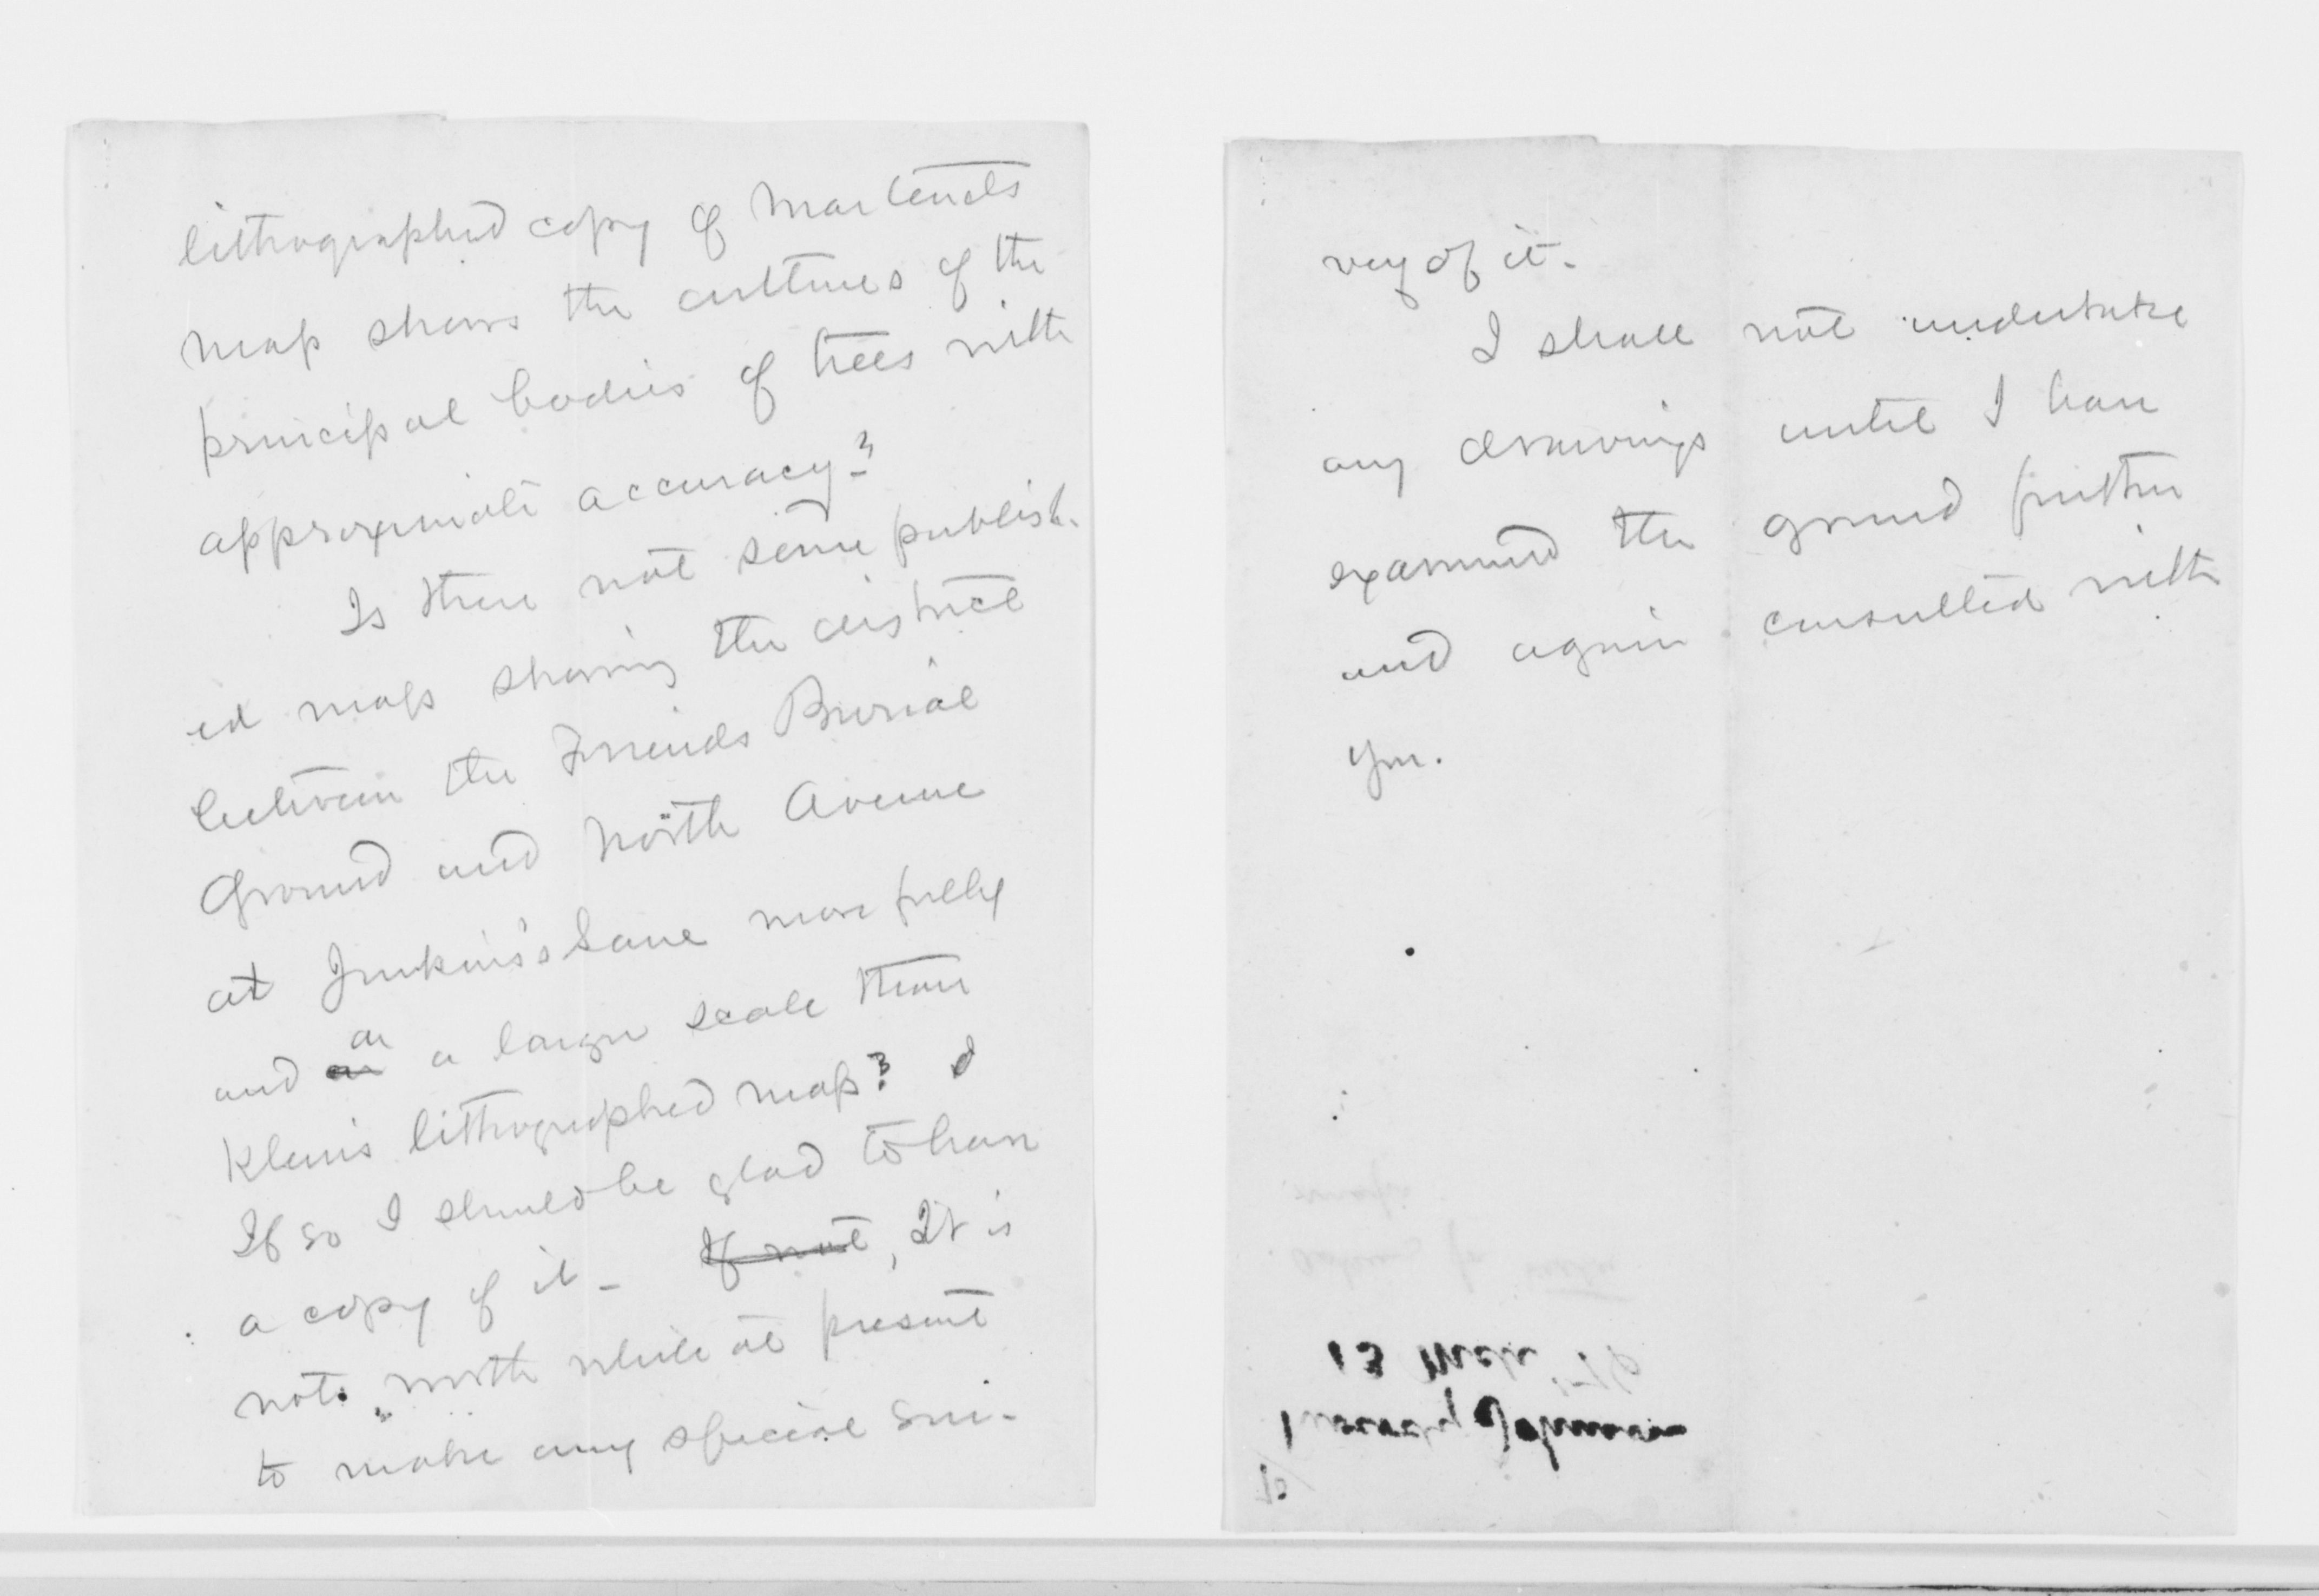 lithographed copy of Martenets
map shows the outlines of the
principal bodies of trees with
approximate accuracy?
Is there not some publish-
ed map showing the district
between the Friends Burial
Ground and North Avenue
at Jenkins's Lane more fully
and on a larger scale than
Klein's lithographed map?
If so I should be glad to have
a copy of it - If not, It is
not worth while at present
to make any special sur-
vey of it.
I shall not undertake
any drawings until I have
examined the ground further
and again consulted with
you.
13 Mch 76
Johnson
To